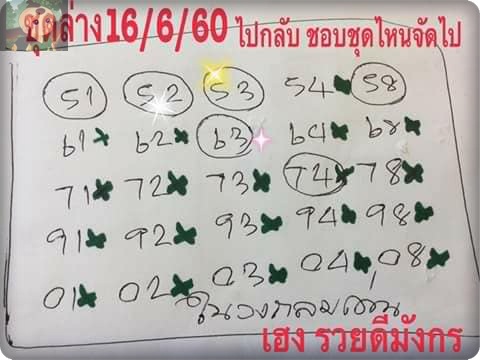 ชุดล่าง 16/6/60 ไปกลับ ชอบชุดไหนจัดไป
51 52 53 54 58
61 62 63 64 68
71 72 73 74 78
91 92 93 94 98
01 02 03 04 08
ในวงกลมเด่น
เฮง รวยดีมังกร